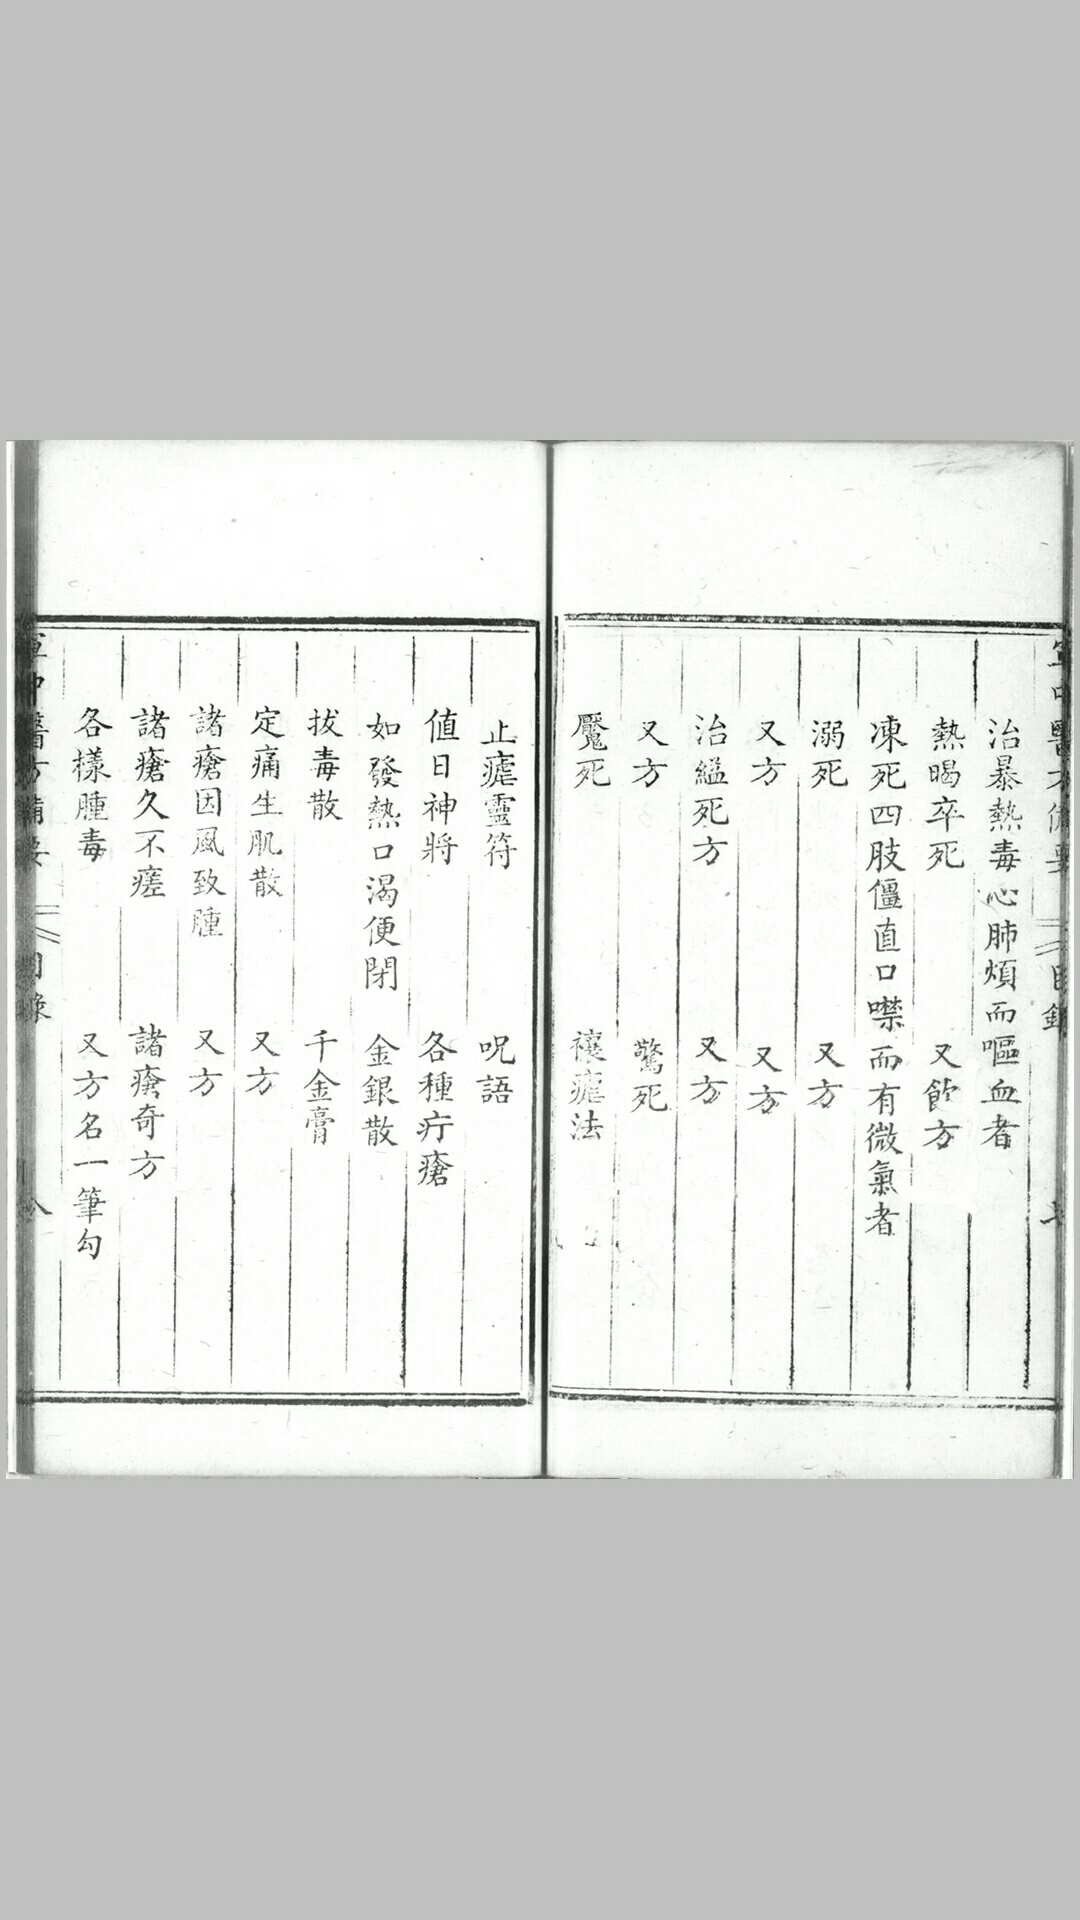 治暴熱毒心肺煩而嘔血者
熱暍卒死 又飲方
凍死四肢僵直口噤而有微氣者
溺死 又方
又方 又方
治縊死方 又方
又方 驚死
魘死 禳瘧法
止瘧靈符 呪語
值日神將 各種疔瘡
如發熱口渴便閉 金銀散
拔毒散 千金膏
定痛生肌散 又方
諸瘡因風致腫 又方
諸瘡久不瘥 諸瘡奇方
各樣腫毒 又方名一筆勾